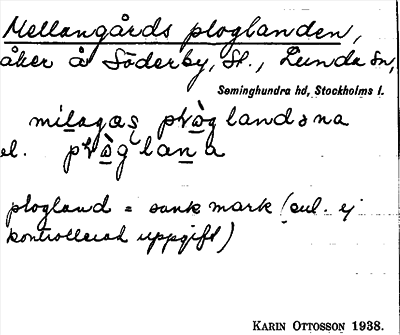 Mellangårds ploglanden,
åker å Söderby, Sl., Lunda sn,
Seminghundra hd, Stockholms l.
milagas plòglandəna
el. plòg lana
plogland = sank mark (enl. ej
kontrollerad uppgift)
KARIN OTTOSSON 1938.